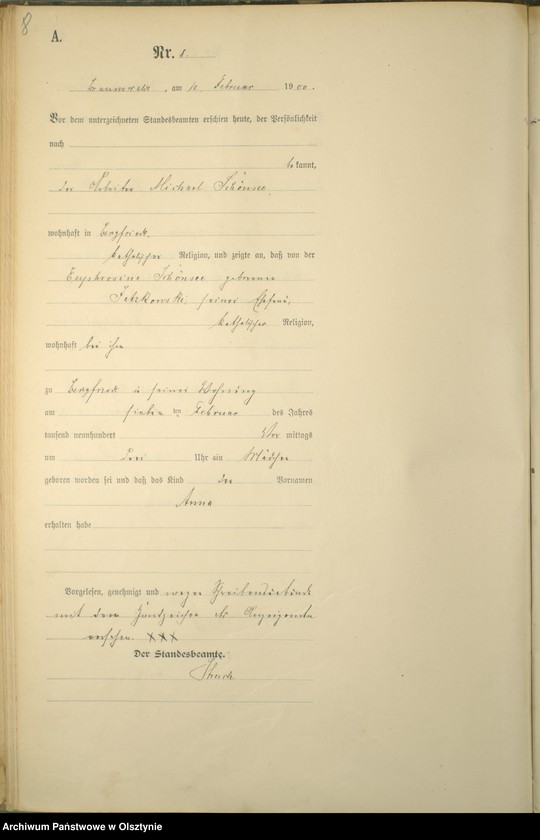 8
A.
Nr. 8.
, am 10. Februar 1900.
Vor dem unterzeichneten Standesbeamten erschien heute, der Persönlichkeit
nach
bekannt,
der Arbeiter Michael Schönsee,
wohnhaft in Bergfriede,
katholischer Religion, und zeigte an, daß von der
Euphrosine Schönsee geborene
seiner Ehefrau,
katholischer Religion,
wohnhaft bei ihm
zu Bergfriede in seiner Wohnung
am sieben ten Februar des Jahres
tausend neunhundert Vor mittags
um drei Uhr ein Mädchen
geboren worden sei und daß das Kind den Vornamen
Anna
erhalten habe
Vorgelesen, genehmigt und wegen Schreibensunkunde
mit dem Handzeichen des Anzeigenden
versehen. XXX
Der Standesbeamte.
Archiwum Państwowe w Olsztynie